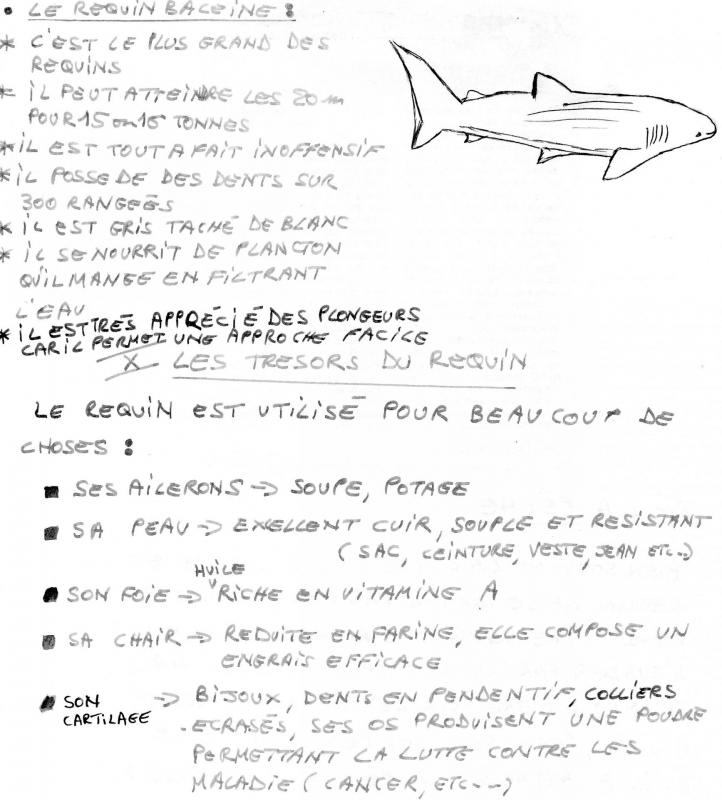 • LE REQUIN BALEINE :
* C'EST LE PLUS GRAND DES
REQUINS
* IL PEUT ATTEINDRE LES 20 m
POUR 15 ou 16 TONNES
* IL EST TOUT A FAIT INOFFENSIF
* IL POSSEDE DES DENTS SUR
300 RANGEÉS
* IL EST GRIS TACHÉ DE BLANC
* IL SE NOURRIT DE PLANCTON
QU'IL MANGE EN FILTRANT
L'EAU
* IL EST TRÉS APPRÉCIÉ DES PLONGEURS
CAR IL PERMET UNE APPROCHE FACILE
X LES TRESORS DU REQUIN
LE REQUIN EST UTILISÉ POUR BEAUCOUP DE
CHOSES :
■ SES AILERONS → SOUPE, POTAGE
■ SA PEAU → EXELLENT CUIR, SOUPLE ET RESISTANT
(SAC, CEINTURE, VESTE, JEAN ETC..)
■ SON FOIE → HUILE RICHE EN VITAMINE A
■ SA CHAIR → REDUITE EN FARINE, ELLE COMPOSE UN
ENGRAIS EFFICACE
■ SON CARTILAGE → BIJOUX, DENTS EN PENDENTIF, COLLIERS
. ECRASÉS, SES OS PRODUISENT UNE POUDRE
PERMETTANT LA LUTTE CONTRE LES
MALADIE (CANCER, ETC...)